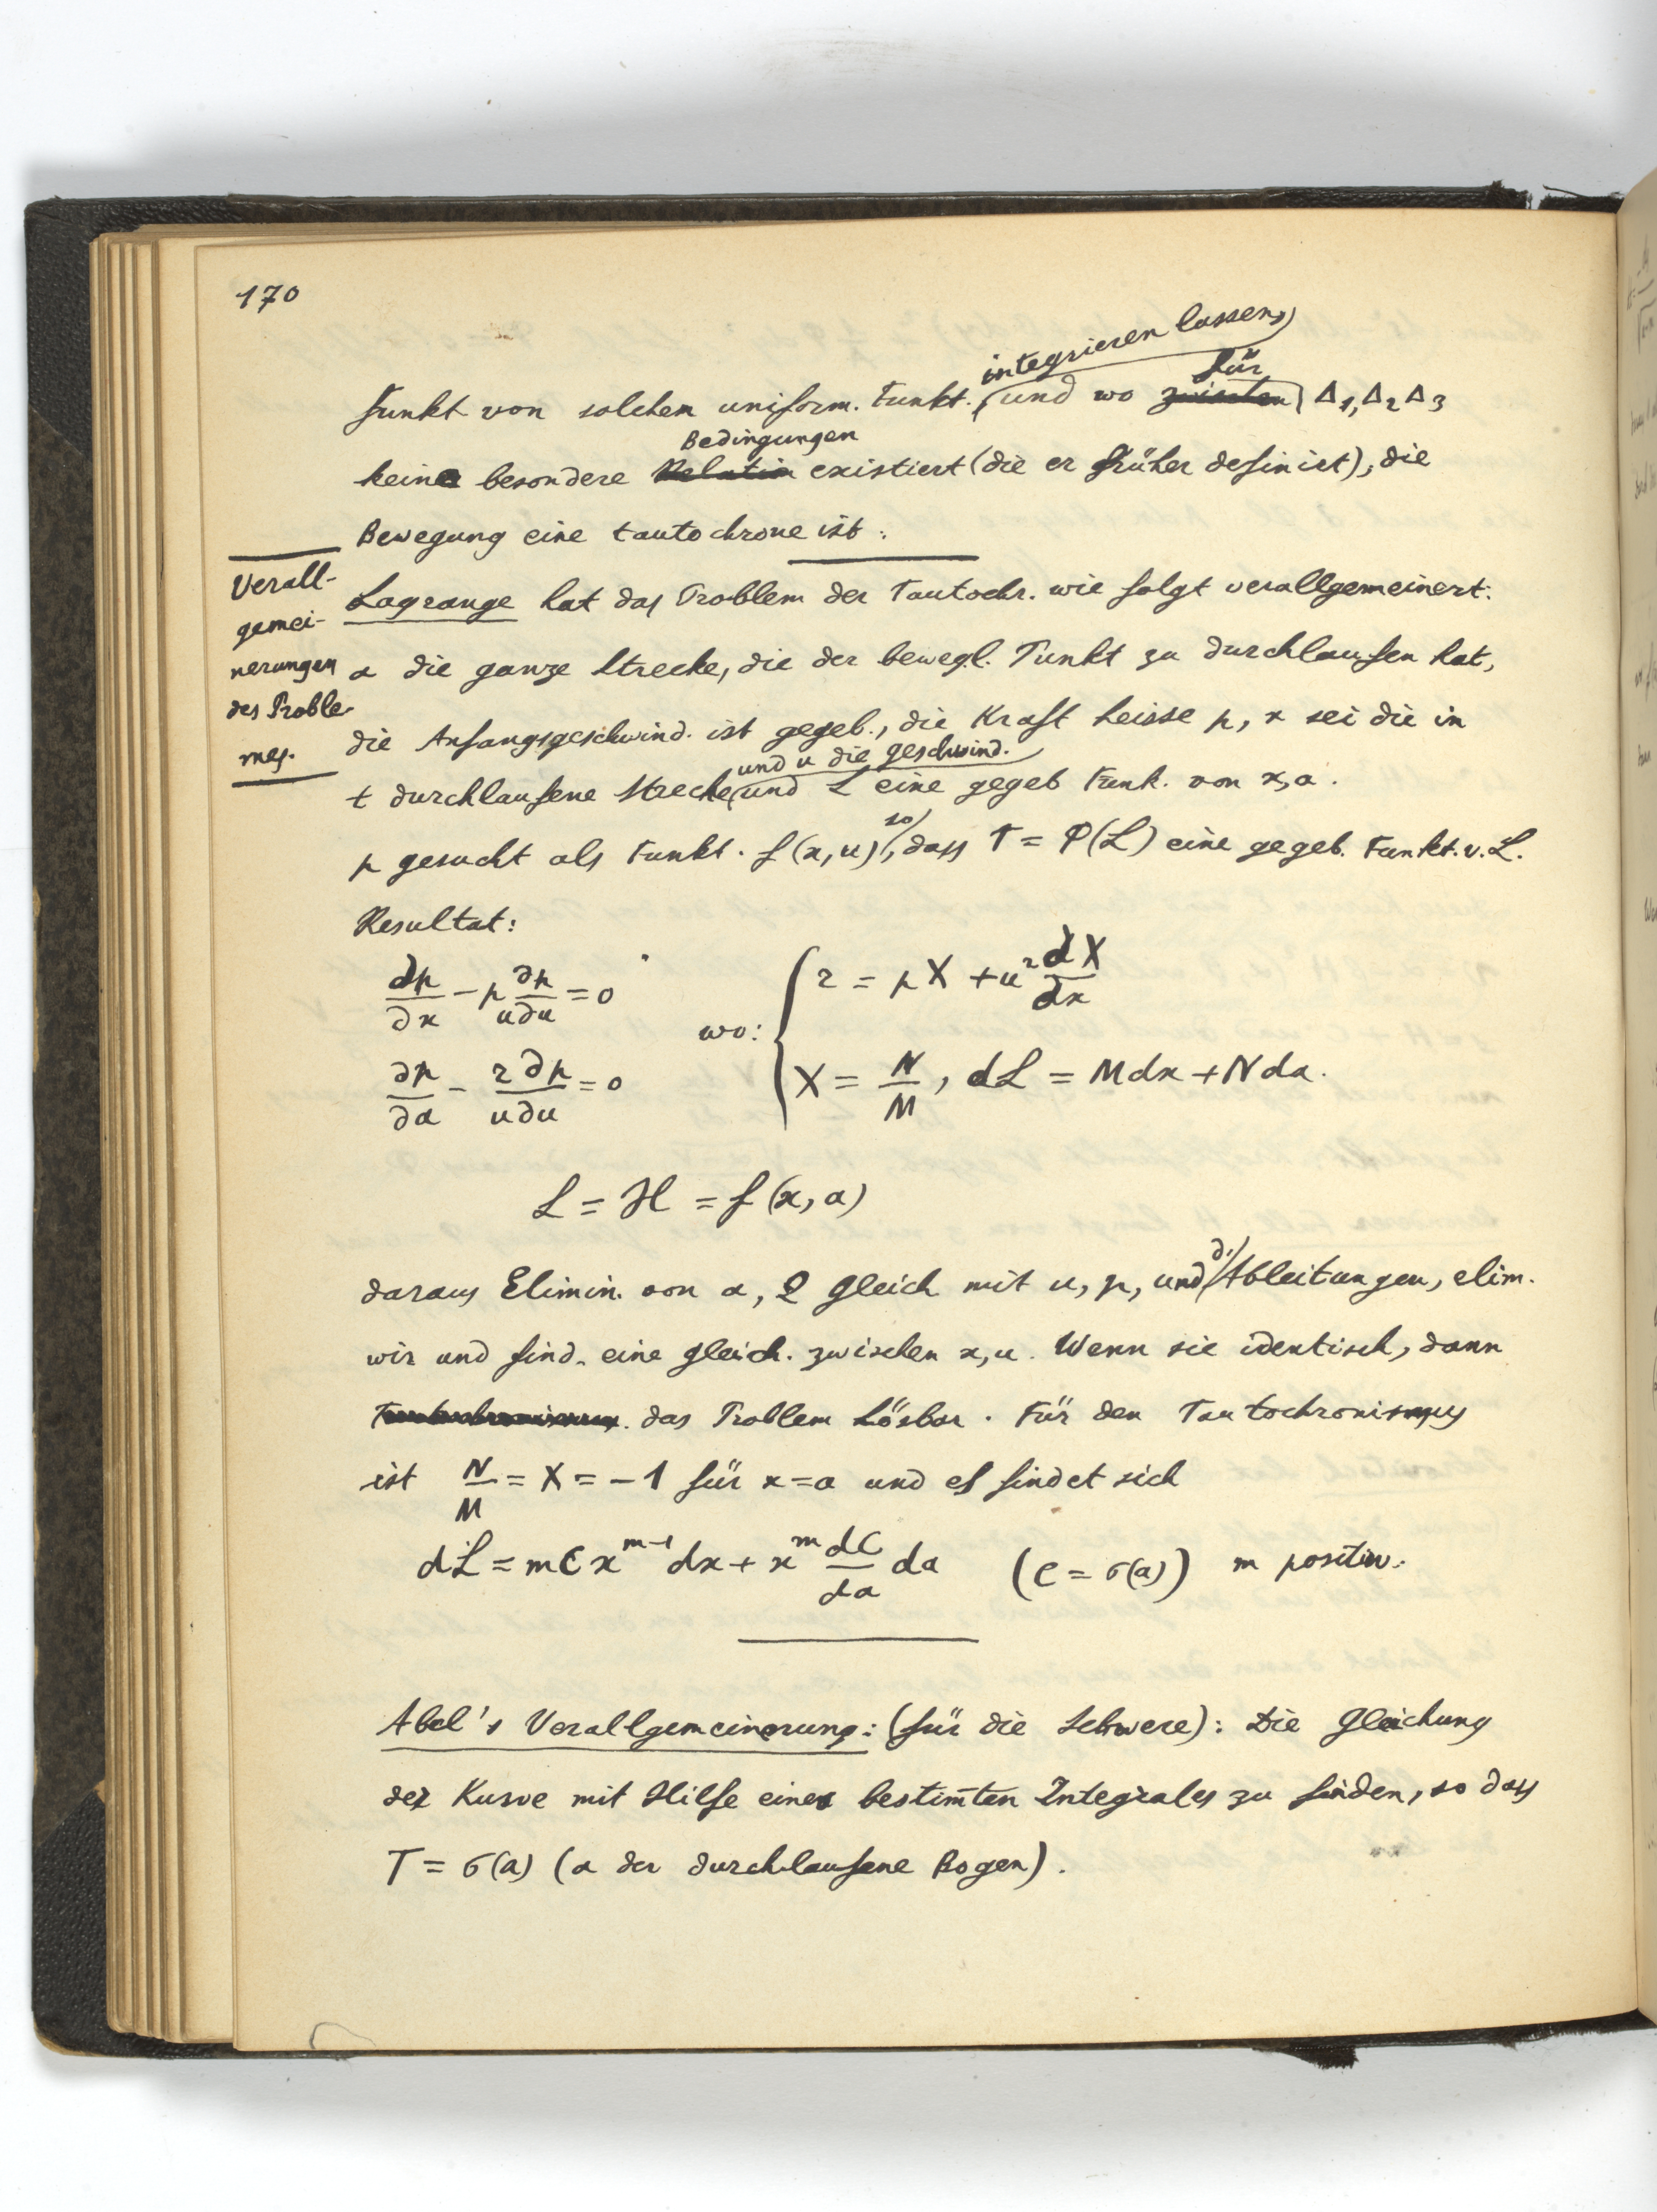 170
integrieren lassen,
für
funkt von solchen uniform. Funkt. und wo zwischen Δ₁, Δ₂ Δ₃
Bedingungen
keine besondere Relation existiert (die er früher definiert), die
Bewegung eine tautochrone ist.
Verall-
gemei-
nerungen
des Proble-
mes.
Lagrange hat das Problem der Tautochr. wie folgt verallgemeinert:
a die ganze Strecke, die der bewegl. Punkt zu durchlaufen hat,
die Anfangsgeschwind. ist gegeb., die Kraft heisse p, x sei die in
und u die geschwind.
t durchlaufene Strecke und L eine gegeb Funk. von x, a.
so
p gesucht als Funkt. f(x, u), dass T = P(L) eine gegeb. Funkt. v. L.
Resultat:
∂p/∂x − p ∂p/u∂u = 0
∂p/∂a − r ∂p/u∂u = 0
wo:
r = pX + u² dX/dx
X = N/M, dL = Mdx + Nda.
L = H = f(x, a)
d.
daraus Elimin. von a, 2 gleich mit u, p, und Ableitungen, elim.
wir und find. eine gleich. zwischen x, u. Wenn sie identisch, dann
Tautochronismus. das Problem Lösbar. Für den Tautochronismus
ist N/M = X = −1 für x = a und es findet sich
dL = mCx^{m−1} dx + x^m dC/da da (C = σ(a)) m positiv.
Abel's Verallgemeinerung: (für die Schwere): Die Gleichung
der Kurve mit Hilfe eines bestim̅ten Integrales zu finden, so dass
T = σ(a) (a der durchlaufene Bogen).